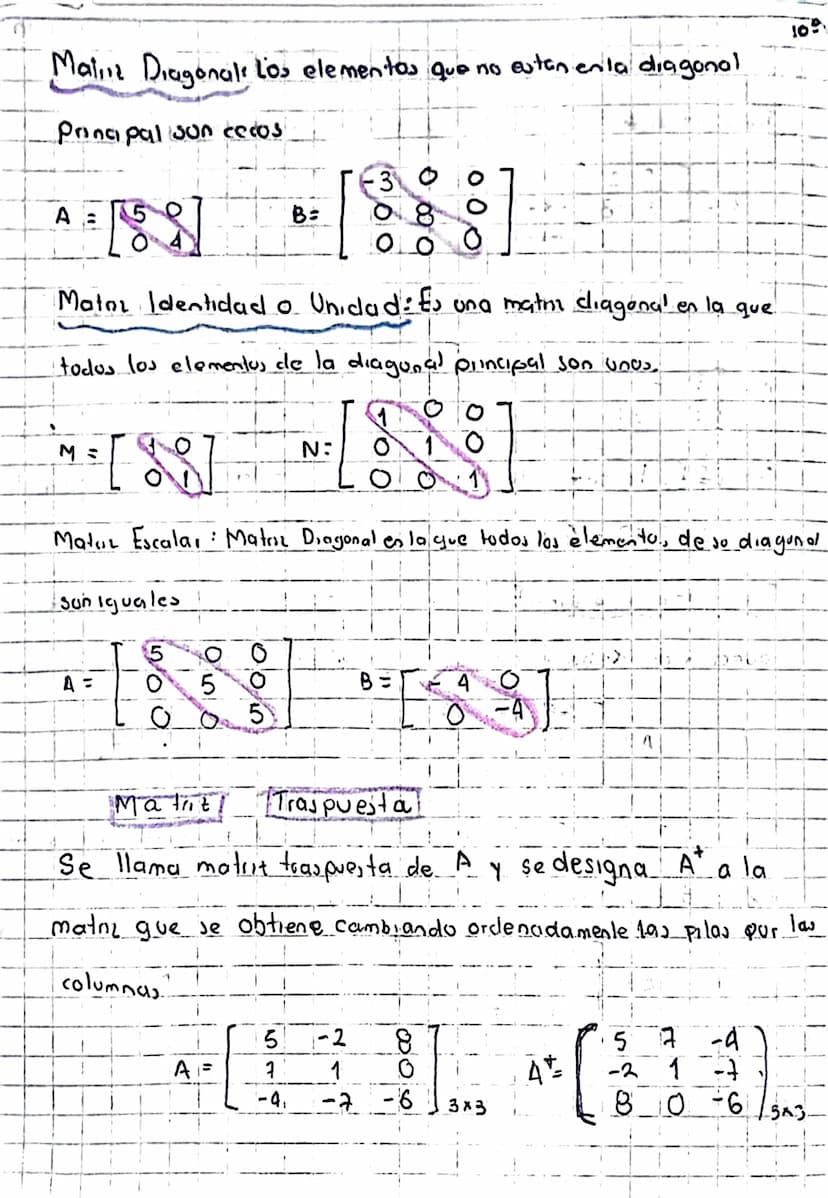 10º
Matriz Diagonal: Los elementos que no estan en la diagonal
Principal son ceros
A = [5 0
0 4]
B= [-3 0 0
0 8 0
0 0 0]
Matriz Identidad o Unidad: Es una matriz diagonal en la que
todos los elementos de la diagonal principal son unos.
M = [1 0
0 1]
N= [1 0 0
0 1 0
0 0 1]
Matriz Escalar: Matriz Diagonal en la que todos los elementos de su diagonal
son iguales
A = [5 0 0
0 5 0
0 0 5]
B = [-4 0
0 -4]
Matriz Traspuesta
Se llama matriz traspuesta de A y se designa A^t a la
matriz que se obtiene cambiando ordenadamente las filas por las
columnas
A = [5 -2 8
7 1 0
-4 -7 -6] 3x3
A^t= [5 7 -4
-2 1 -7
8 0 -6] 3x3